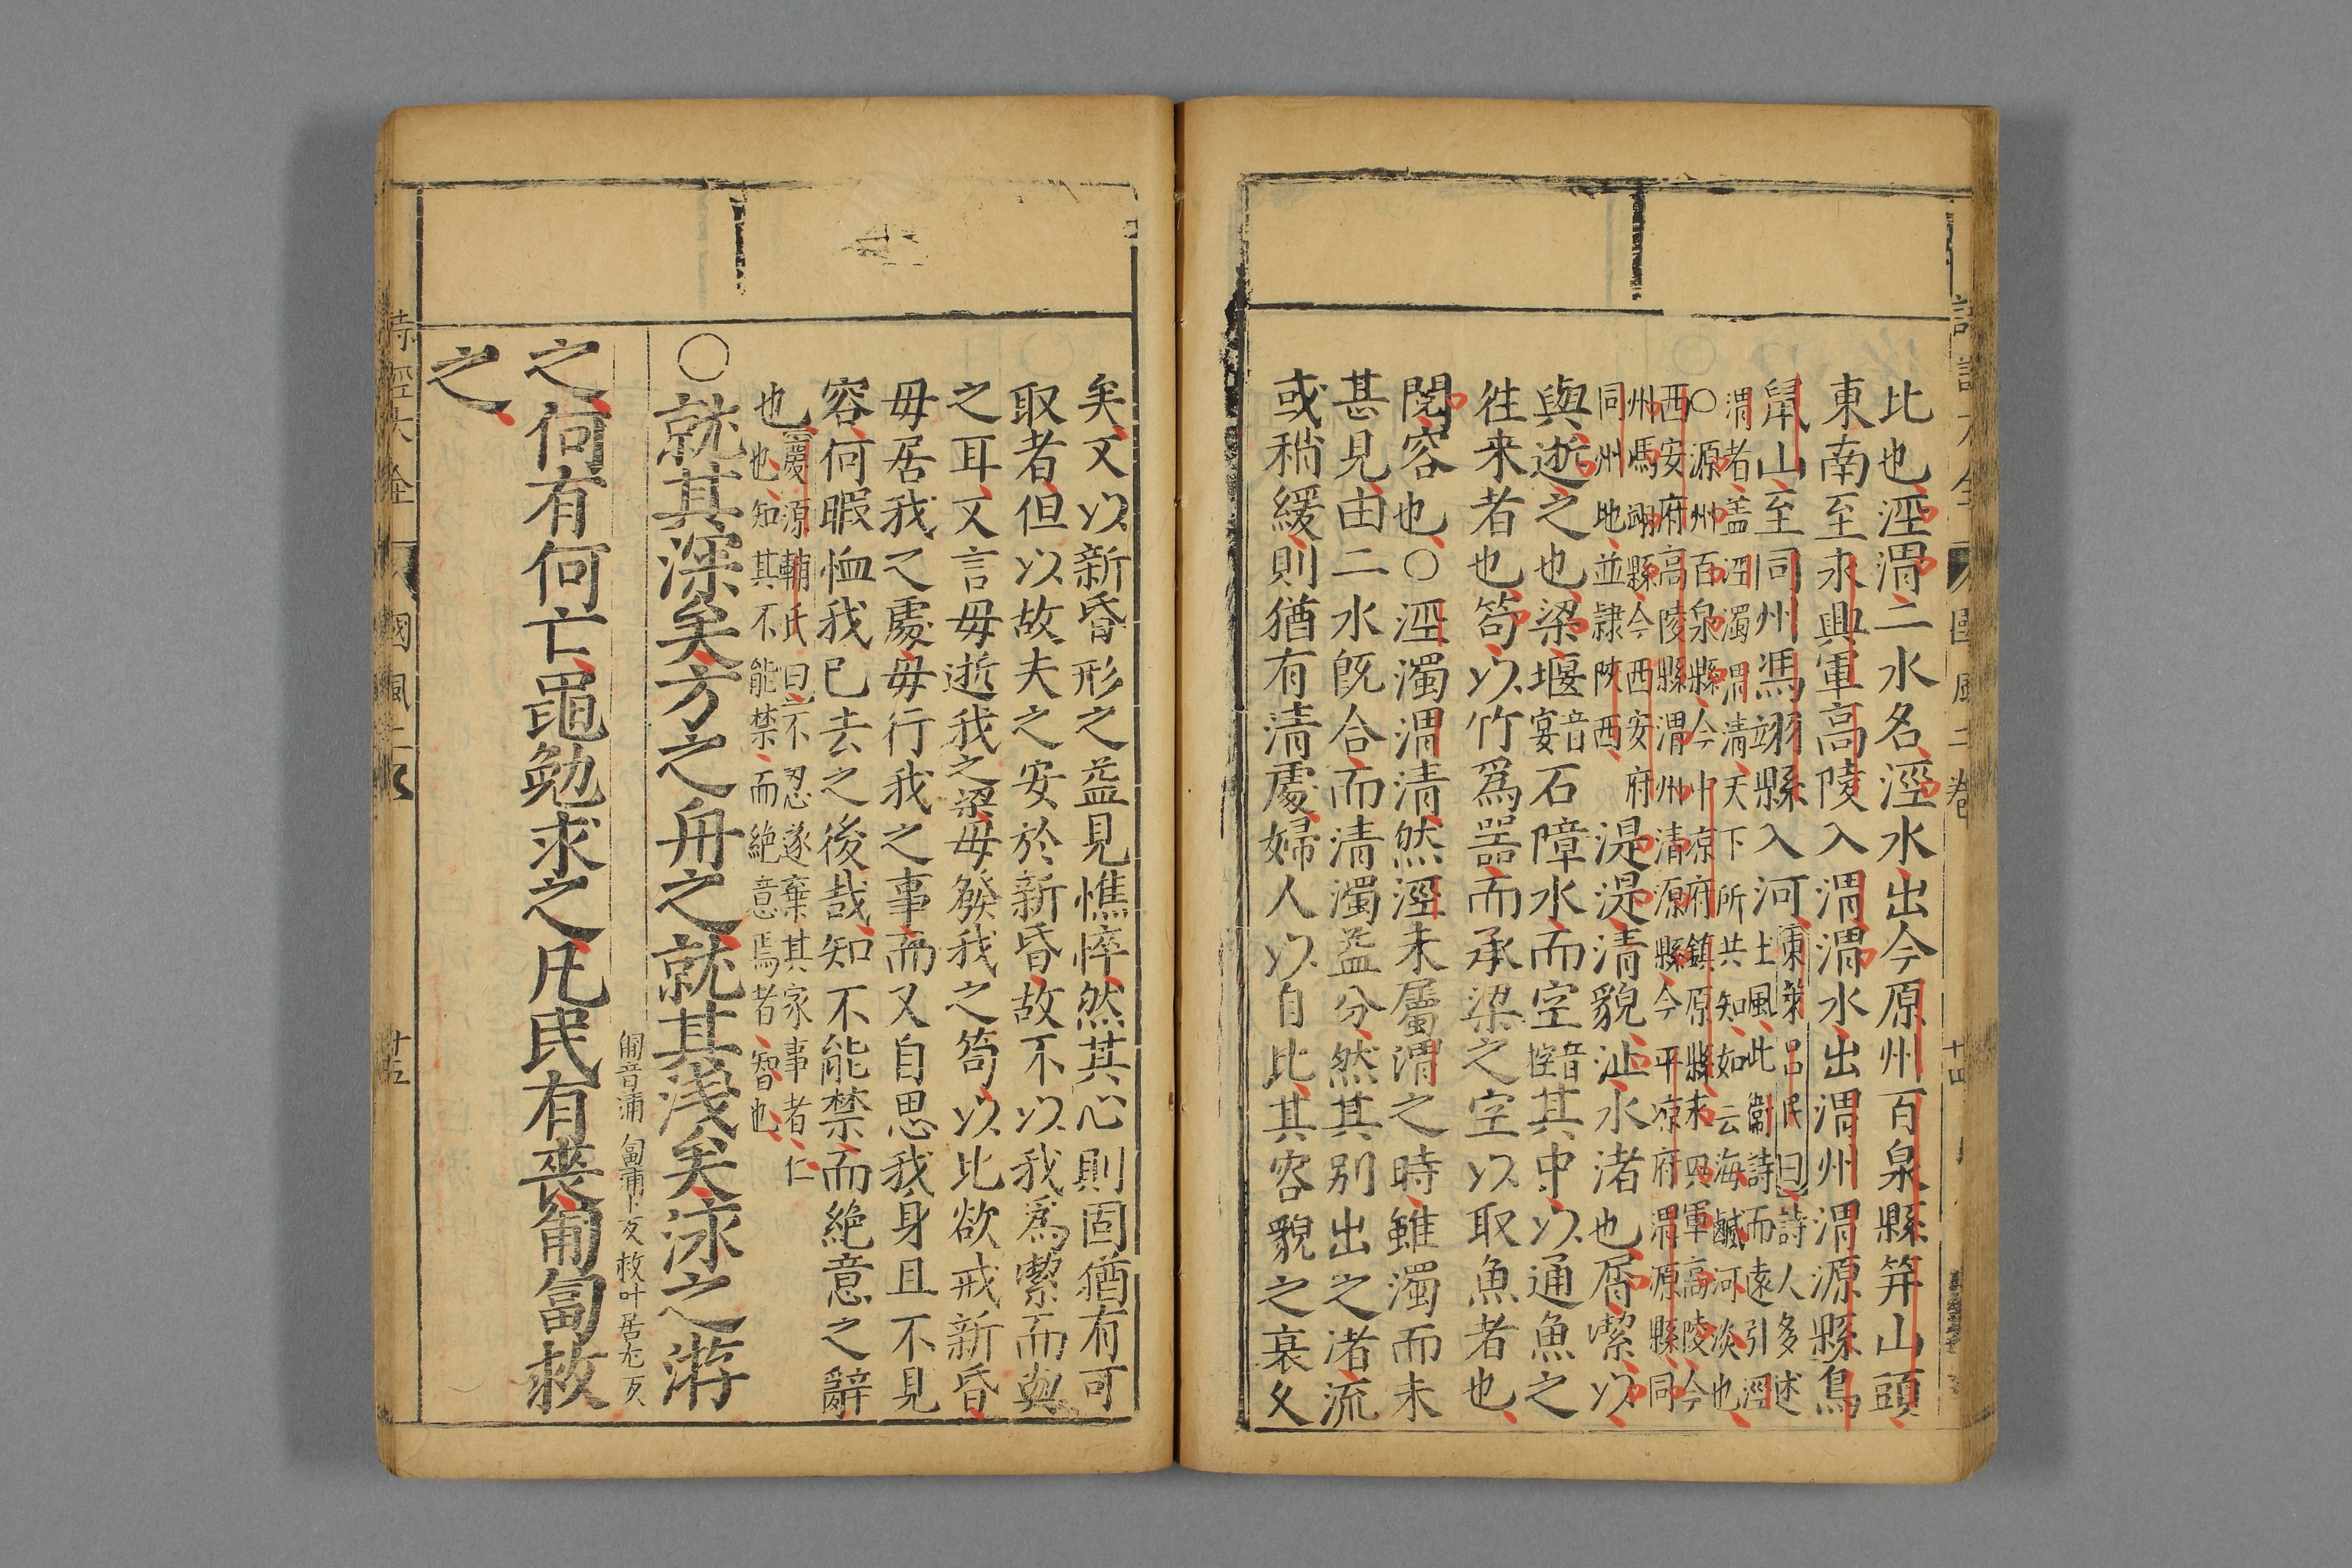 比也涇渭二水名涇水出今原州百泉縣笄山頭
東南至永興軍高陵入渭渭水出渭州渭源縣鳥
鼠山至同州馮翊縣入河東萊呂氏曰詩人多述
土風此衞詩而遠引涇
渭者盖涇濁渭清天下所共知如云海鹹河淡也
○源州百泉縣今中凉府鎮原縣永興軍高陵今
西安府高陵縣渭州清源縣今平凉府渭源縣同
州馮翊縣今西安府
同州地並隷陝西湜湜清貌沚水渚也屑潔以
與逝之也梁堰音宴石障水而空音控其中以通魚之
徃来者也笱以竹爲器而承梁之空以取魚者也
閱容也○涇濁渭清然涇未屬渭之時雖濁而未
甚見由二水旣合而清濁益分然其别出之渚流
或稍緩則猶有清處婦人以自比其容貌之衰久
矣又以新昏形之益見憔悴然其心則固猶有可
取者但以故夫之安於新昏故不以我爲潔而與
之耳又言毋逝我之梁毋發我之笱以比欲戒新昏
毋居我之處毋行我之事而又自思我身且不見
容何暇恤我已去之後哉知不能禁而絶意之辭
也慶源輔氏曰不忍遂棄其家事者仁
也知其不能禁而絶意焉者智也
○就其深矣方之舟之就其淺矣泳之游
匍音蒲匐蒲卜反救叶居尤反
之何有何亡黽勉求之凡民有喪匍匐救
之
詩經大全
國風二
十五
國風二卷
十四